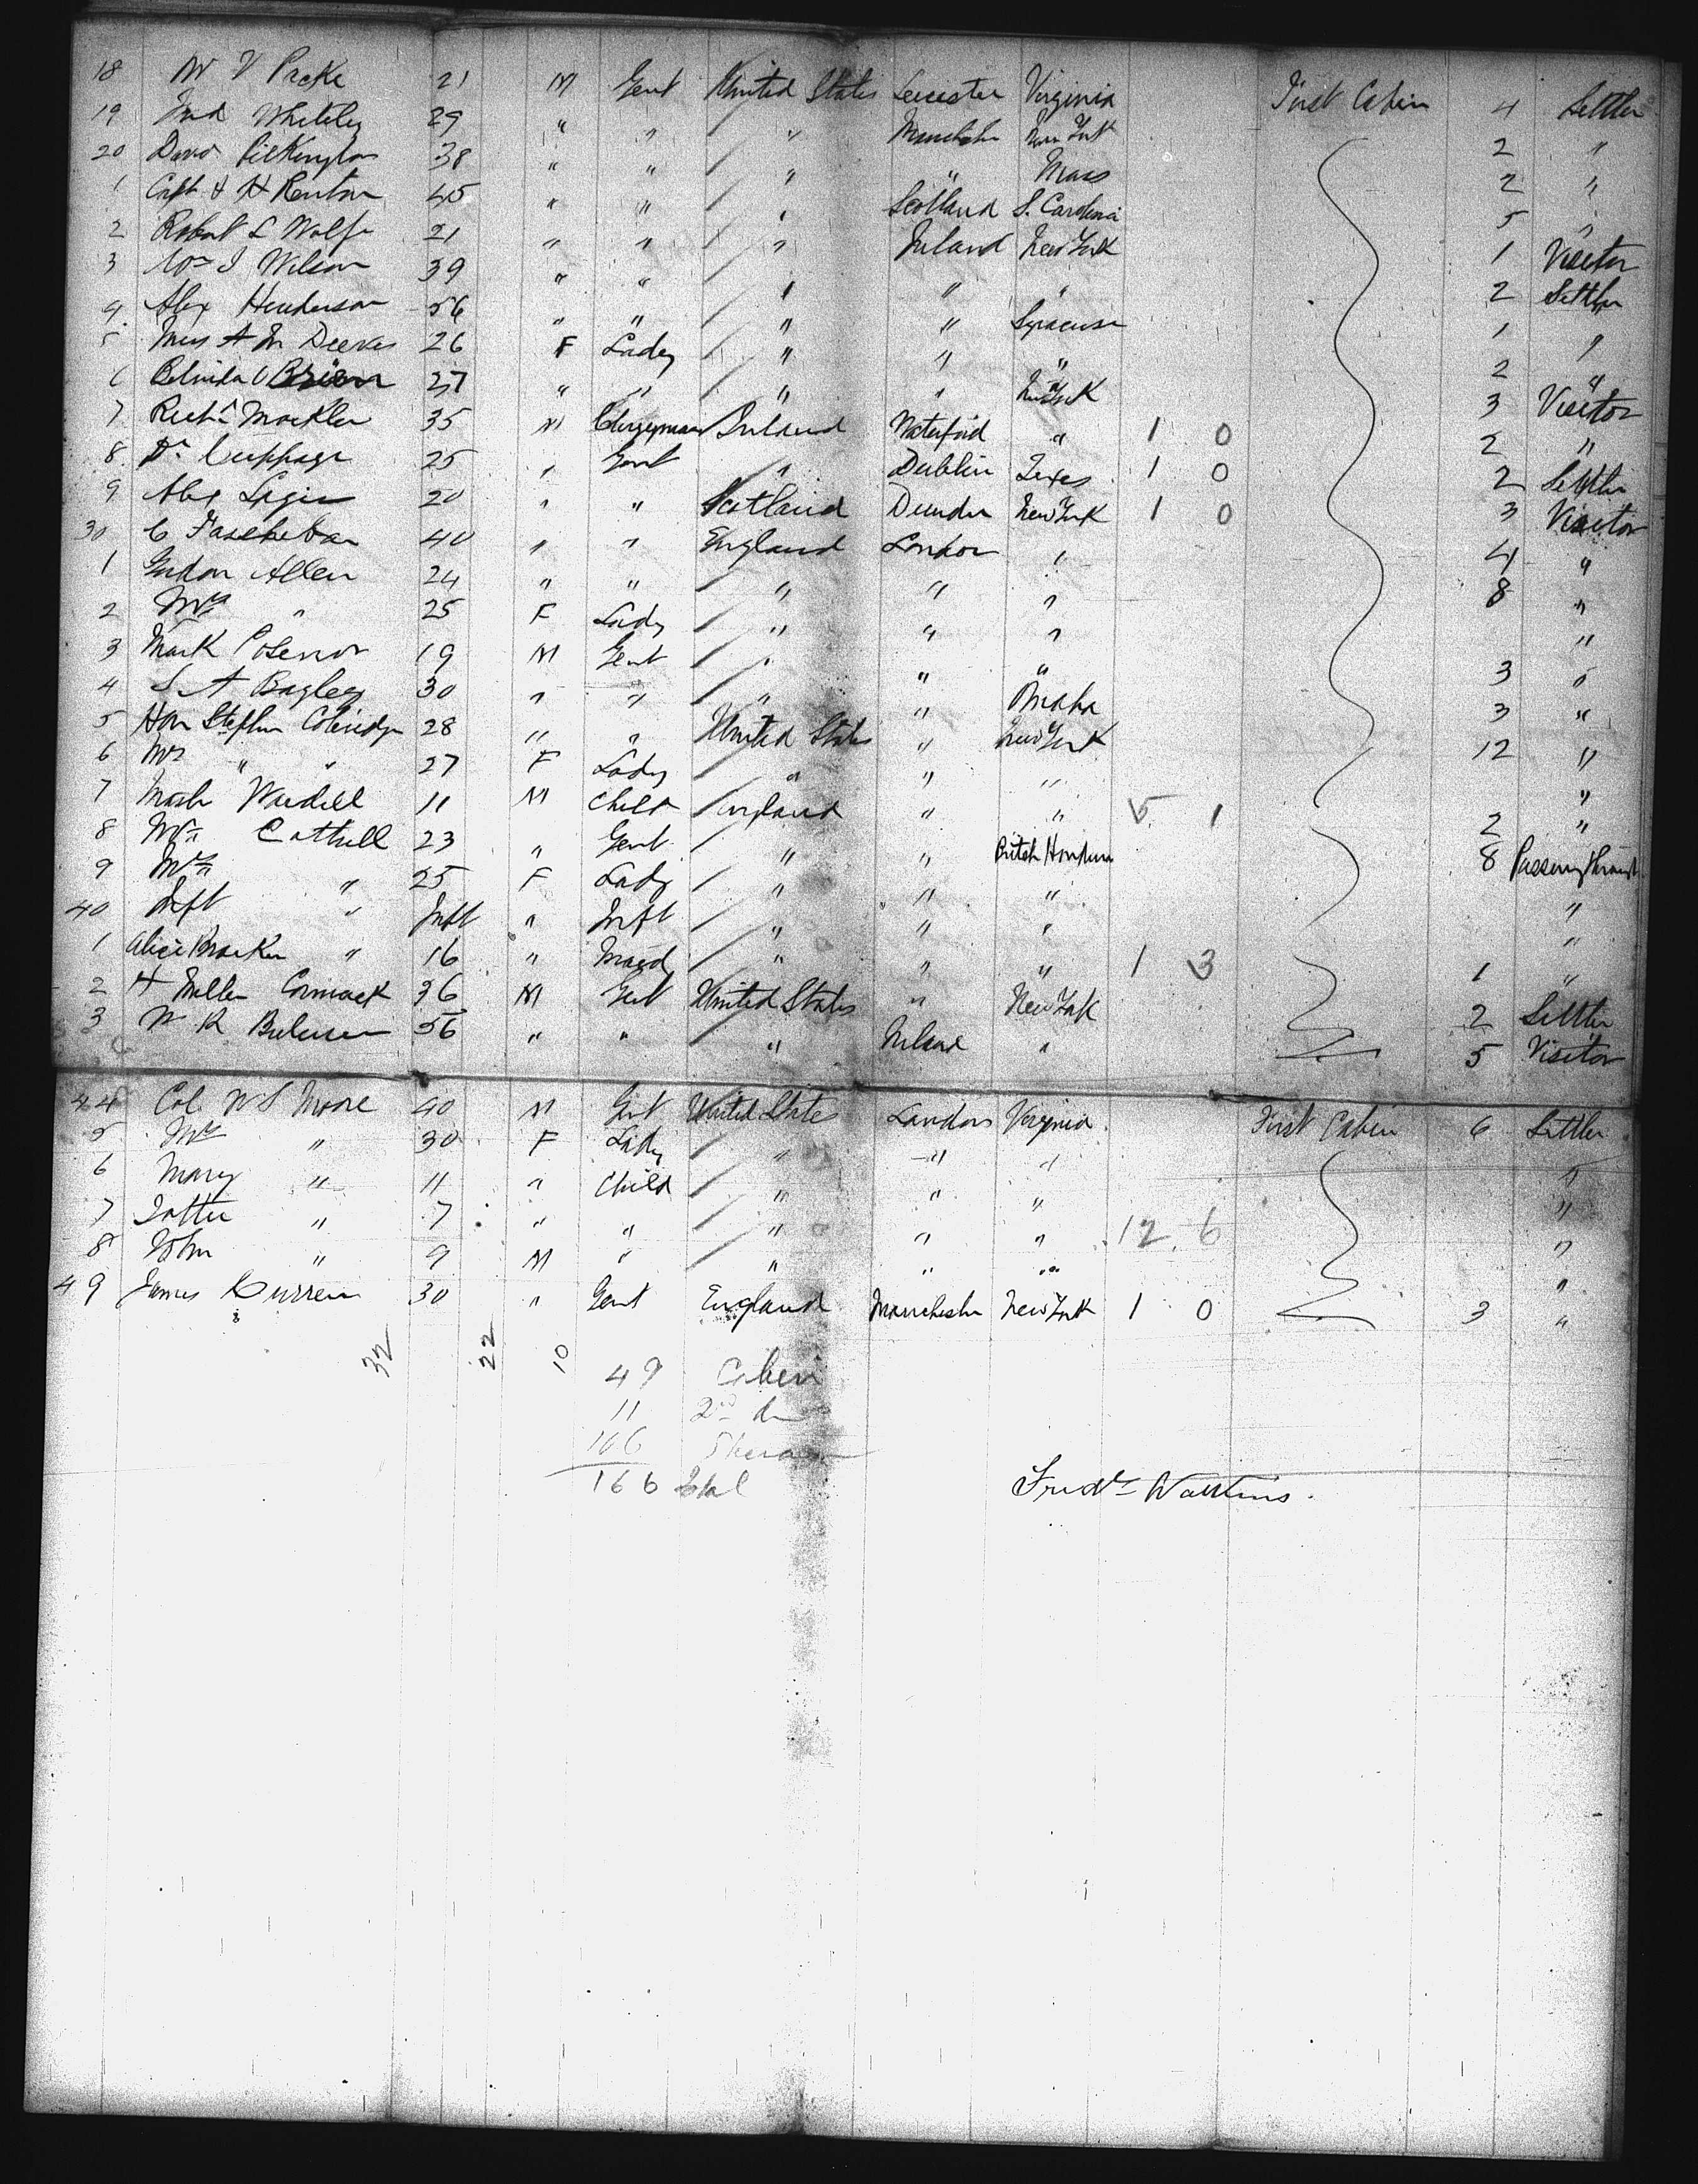 18 W V Packe 21 M Gent United States Leicester Virginia First Cabin 4 Settler
19 Fred Whiteley 29 " " " Manchester New York 2 "
20 David Pilkington 38 " " " " Mass 2 "
1 Capt H H Renton 45 " " " Scotland S. Carolina 5 "
2 Robert L Wolfe 21 " " " Ireland New York 1 Visitor
3 Wm J Wilson 39 " " " " " 2 Settler
4 Alex Henderson 56 " " " " Syracuse 1 "
5 Miss A M Deeves 26 F Lady " " " 2 "
6 Belinda O'Brien 27 " " " " New York 3 Visitor
7 Richd Mockler 35 M Clergyman Ireland Waterford " 1 0 2 "
8 Dr Cuppage 25 " Gent " Dublin Texas 1 0 2 Settler
9 Alex 20 " " Scotland Dundee New York 1 0 3 Visitor
30 C 40 " " England London " 4 "
1 Gordon Allen 24 " " " " " 8 "
2 Mrs " 25 F Lady " " " "
3 Mark 19 M Gent " " " 3 "
4 S A Bagley 30 " " " " Omaha 3 "
5 Hon Stephen Coleridge 28 " " United States " New York 12 "
6 Mrs " " 27 F Lady " " " "
7 Mastr Wardell 11 M Child England " " 5 1 2 "
8 Mr Cottrell 23 " Gent " " British Honduras 8 Passing through
9 Mrs " 25 F Lady " " " "
40 Inft " Inft " Inft " " " "
1 Alice " 16 " Maid " " " 1 3 1 "
2 H Miller Cormack 36 M Gent United States " New York 2 Settler
3 W R 56 " " " Ireland " 5 Visitor
44 Col W S Moore 40 M Gent United States London Virginia First Cabin 6 Settler
5 Mrs " 30 F Lady " " " "
6 Mary " 11 " Child " " " "
7 " 7 " " " " " 12 6 "
8 John " 9 M " " " " "
49 James Curren 30 " Gent England Manchester New York 1 0 3 "
32 22 10
49 Cabin
11 2nd do
106
166 Total
Fredk Watkins.